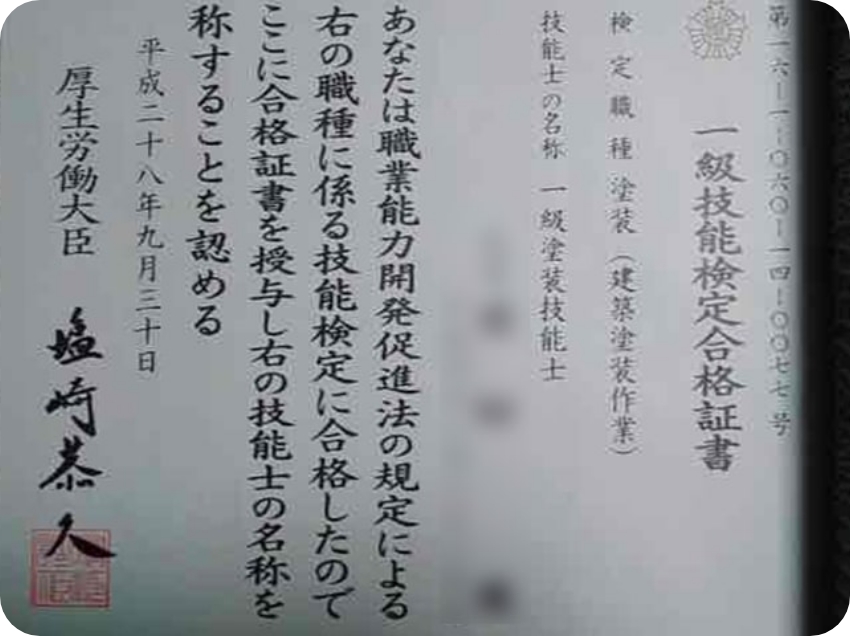 第一六ー一ー〇六〇ー一四ー〇〇七七号
一級技能検定合格証書
検定職種 塗装(建築塗装作業)
技能士の名称 一級塗装技能士
あなたは職業能力開発促進法の規定による
右の職種に係る技能検定に合格したので
ここに合格証書を授与し右の技能士の名称を
称することを認める
平成二十八年九月三十日
厚生労働大臣 塩崎恭久